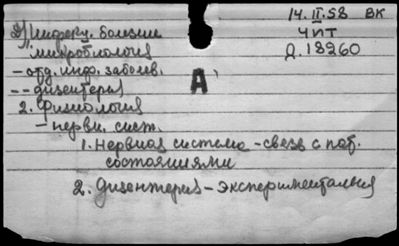 14.II.58 ВК
1) Инфекц. болезни
ЧИТ
микробиология
Д.18260
- отд. инф. заболев.
А
-- дизентерия
2. Физиология
- нервн. сист.
1. Нервная система - связь с пат.
состояниями
2. Дизентерия - экспериментальная